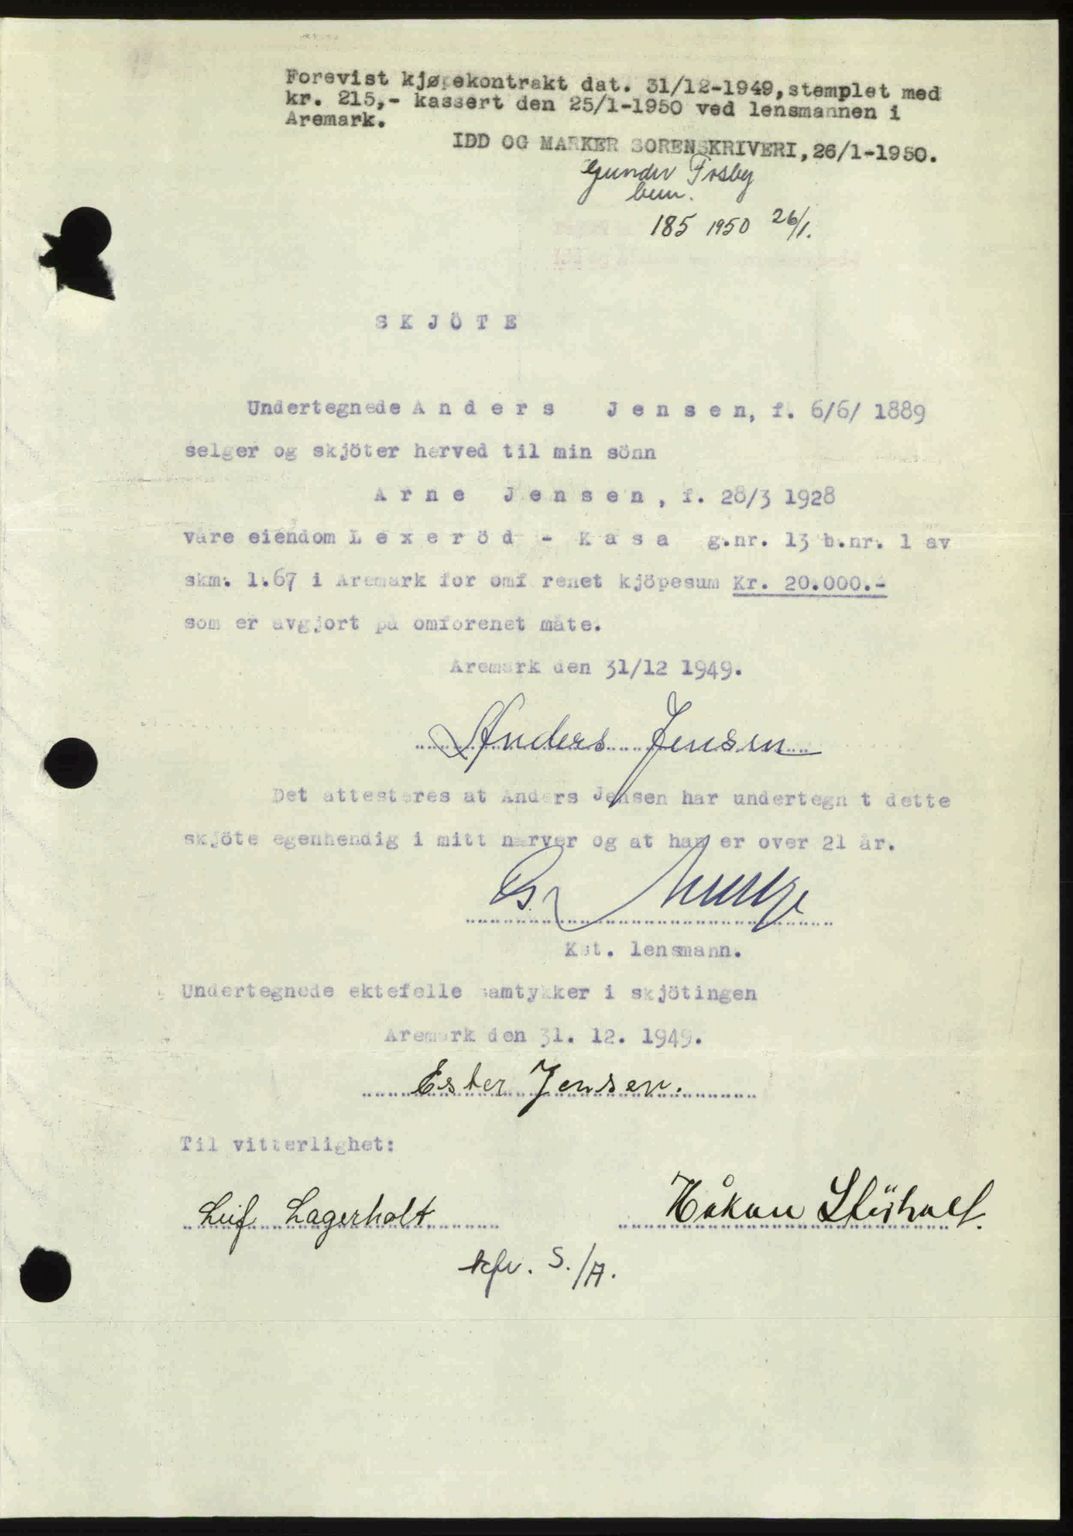 Forevist kjøpekontrakt dat. 31/12-1949, stemplet med
kr. 215,- kassert den 25/1-1950 ved lensmannen i
Aremark.
IDD OG MARKER SORENSKRIVERI, 26/1-1950.
Gunder Fosby
bem.
185 1950 26/1.
SKJÖTE
Undertegnede Anders Jensen, f. 6/6/ 1889
selger og skjöter herved til min sönn
Arne Jensen, f. 28/3 1928
våre eiendom Lexeröd - Kasa g.nr. 13 b.nr. 1 av
skm. 1.67 i Aremark for omf renet kjöpesum Kr. 20.000.-
som er avgjort på omforenet måte.
Aremark den 31/12 1949.
Anders Jensen
Det attesteres at Anders Jensen har undertegn t dette
skjöte egenhendig i mitt nærver og at han er over 21 år.
Kst. lensmann.
Undertegnede ektefelle samtykker i skjötingen
Aremark den 31. 12. 1949.
Ester Jensen.
Til vitterlighet:
Leif Lagerholt
Håkan
S./A.